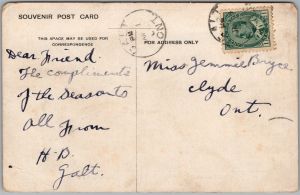 SOUVENIR POST CARD
THIS SPACE MAY BE USED FOR
CORRESPONDENCE
FOR ADDRESS ONLY
Dear Friend.
The compliments
of the Seasons
All From
H-D.
Galt.
Miss Jemmie Bryce
Clyde
Ont.